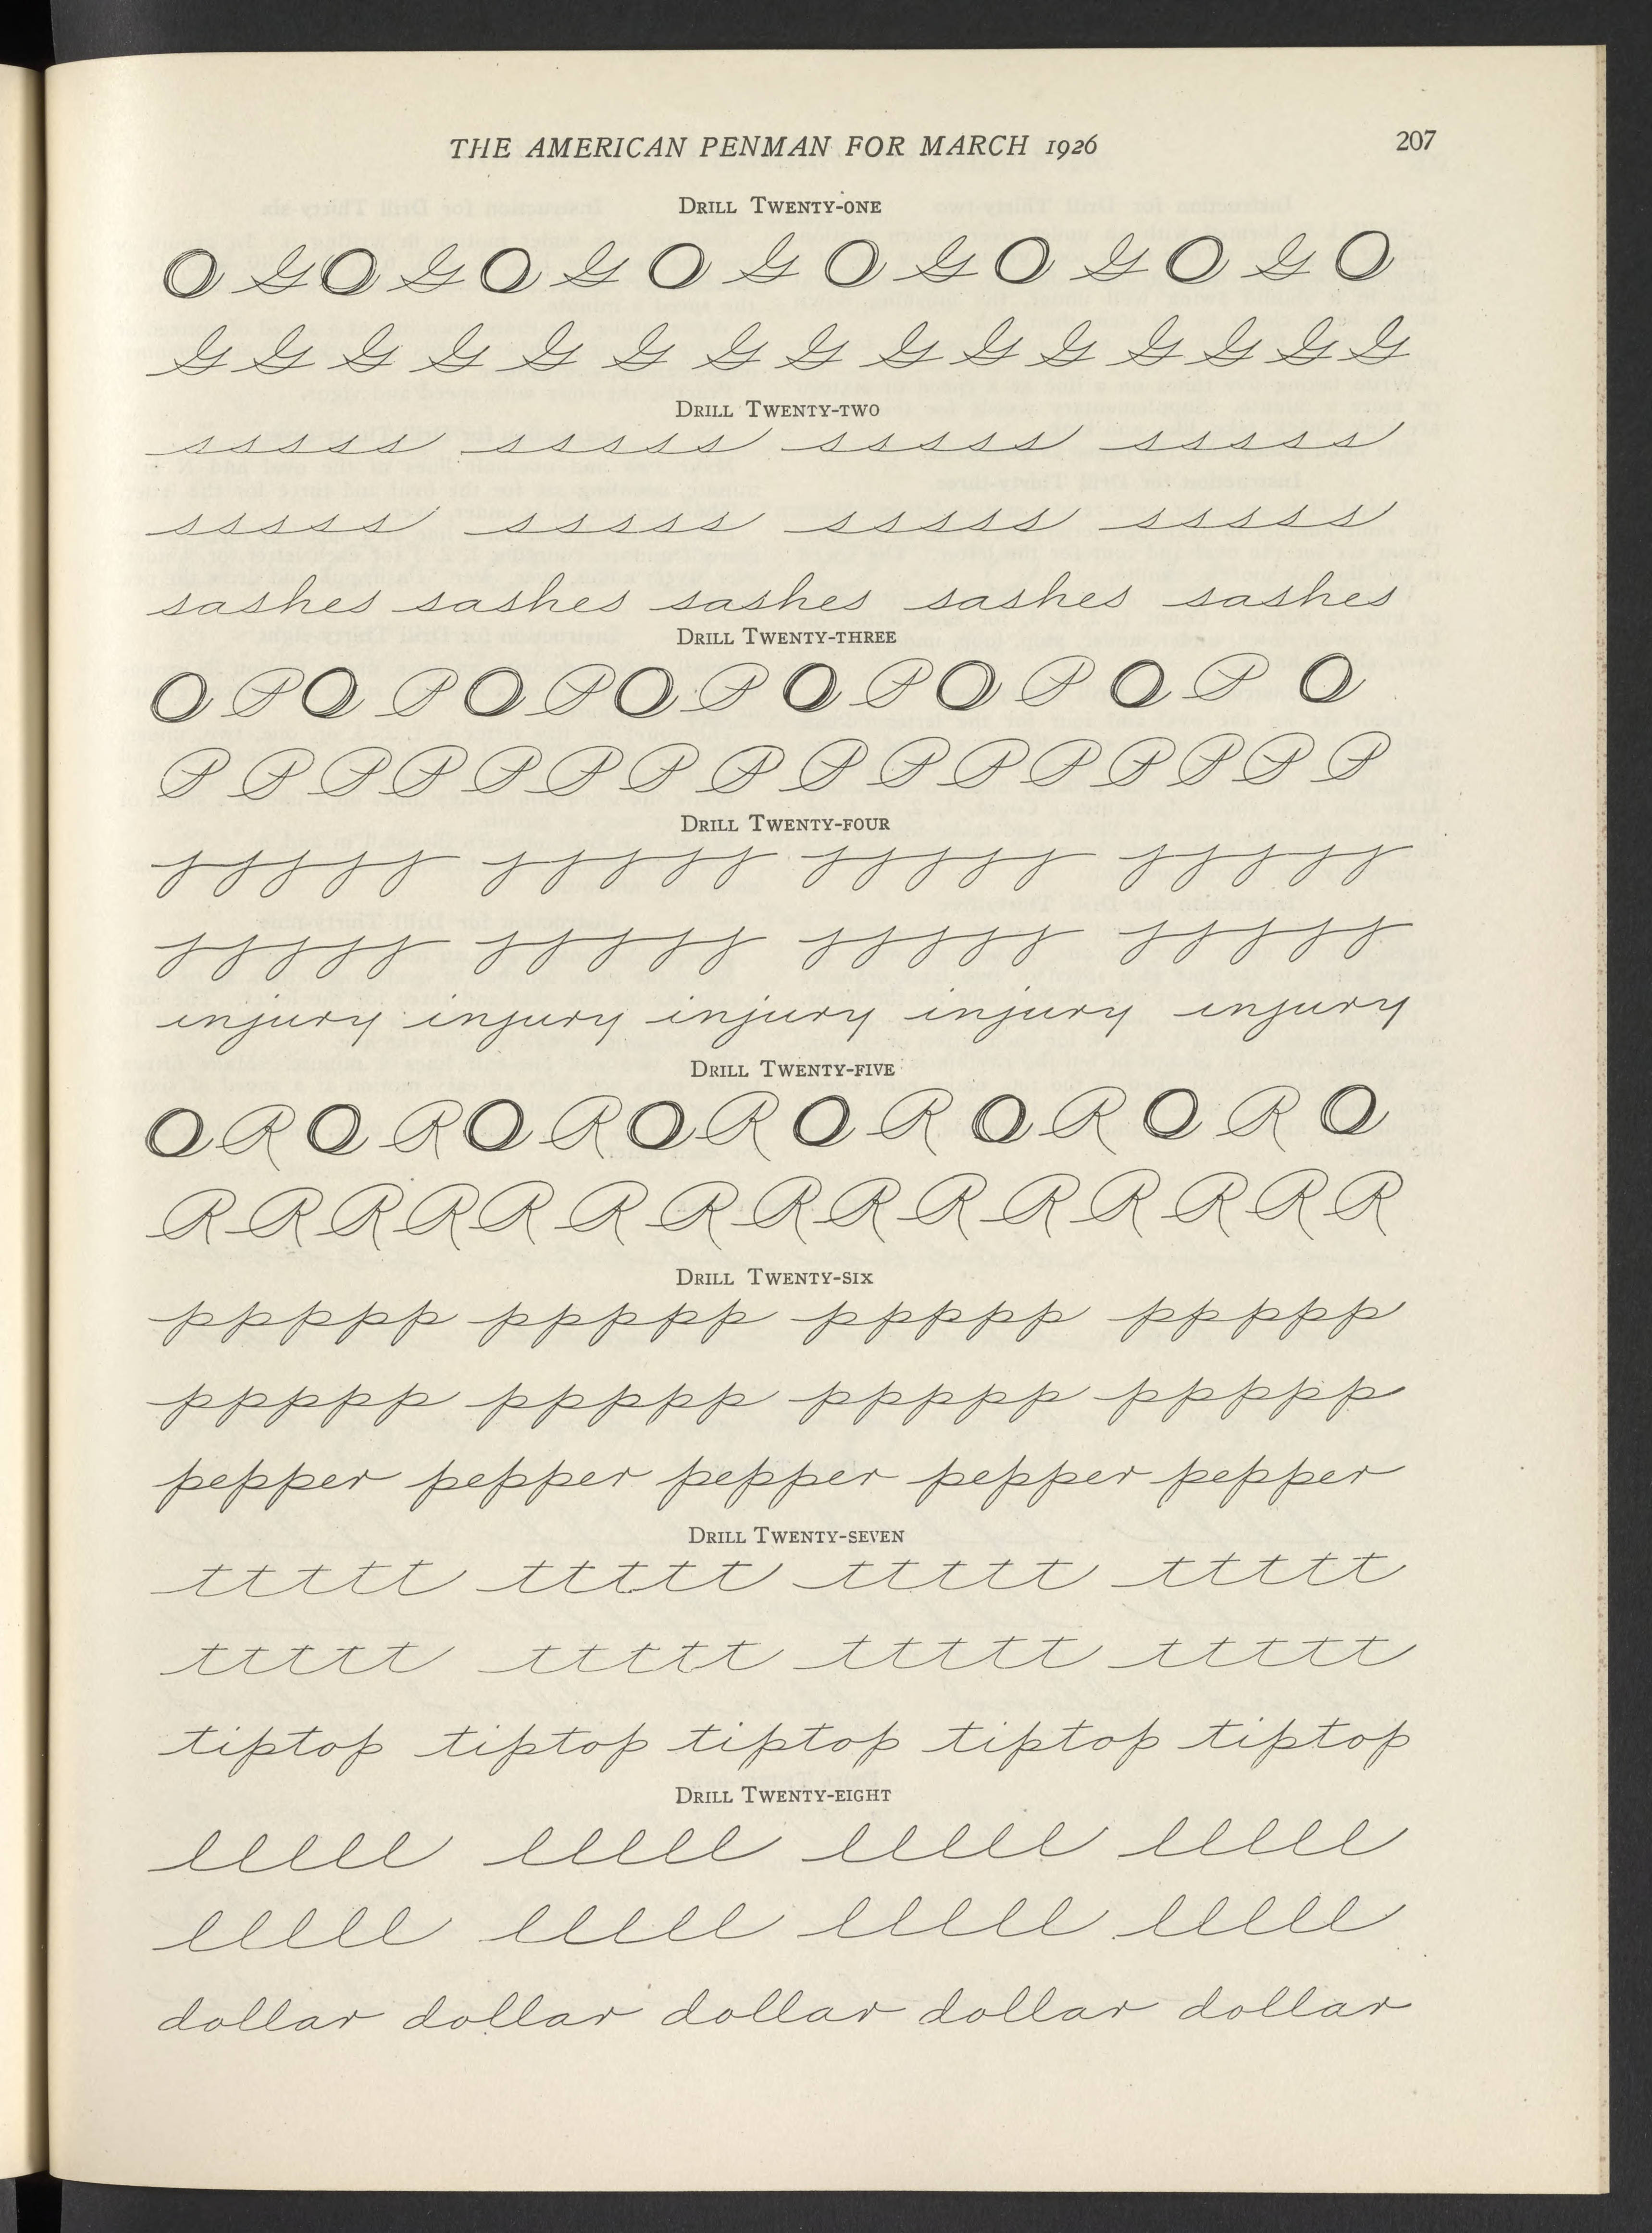 THE AMERICAN PENMAN FOR MARCH 1926 207
DRILL TWENTY-ONE
O G O G O G O G O G O G O G O
G G G G G G G G G G G G G G G
DRILL TWENTY-TWO
sssss sssss sssss sssss
sssss sssss sssss sssss
sashes sashes sashes sashes sashes
DRILL TWENTY-THREE
O P O P O P O P O P O P O P O
P P P P P P P P P P P P P P P P
DRILL TWENTY-FOUR
jjjjj jjjjj jjjjj jjjjj
jjjjj jjjjj jjjjj jjjjj
injury injury injury injury injury
DRILL TWENTY-FIVE
O R O R O R O R O R O R O R O
R R R R R R R R R R R R R R R
DRILL TWENTY-SIX
ppppp ppppp ppppp ppppp
ppppp ppppp ppppp ppppp
pepper pepper pepper pepper pepper
DRILL TWENTY-SEVEN
ttttt ttttt ttttt ttttt
ttttt ttttt ttttt ttttt
tiptop tiptop tiptop tiptop tiptop
DRILL TWENTY-EIGHT
lllll lllll lllll lllll
lllll lllll lllll lllll
dollar dollar dollar dollar dollar